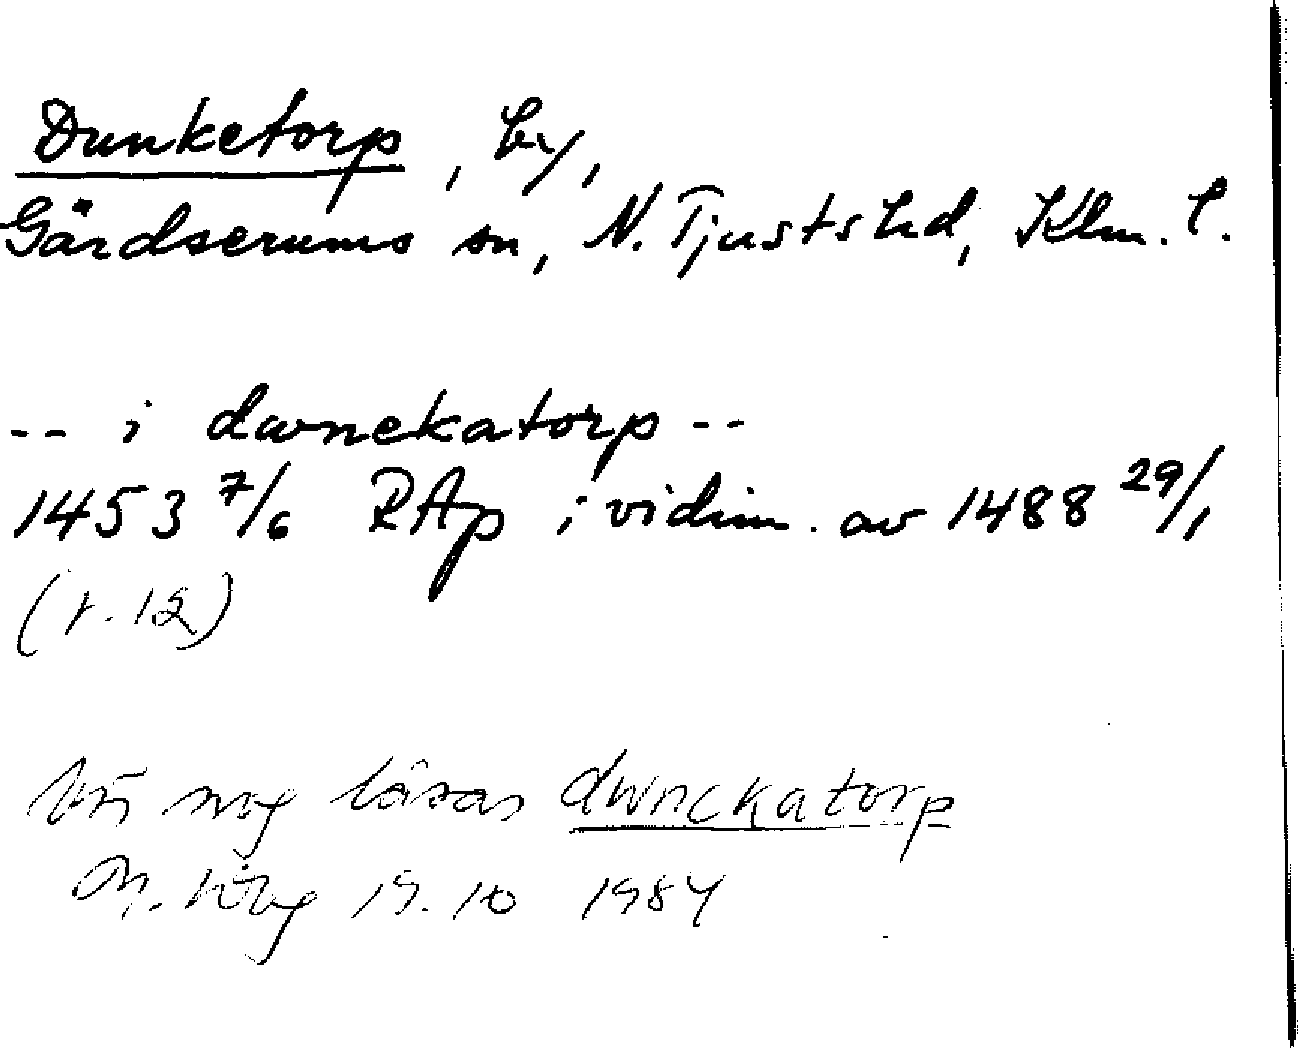 Dunketorp, by,
Gärdserums sn, N. Tjusts hd, Klm. l.
-- i dwnekatorp --
1453 7/6 RAp i vidim. av 1488 29/1
(r. 12)
bör nog läsas dwnckatorp
19.10 1984